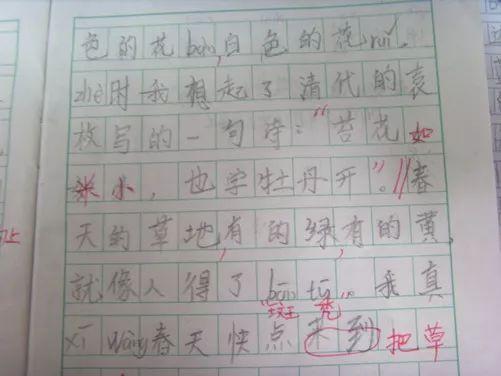 色的花bàn,白色的花ruǐ.
zhè时我想起了清代的袁
枚写的一句诗:“苔花如
米小,也学牡丹开。”//春
天的草地,有的绿,有的黄,
就像人得了bān tū。我真
斑秃
xī wàng春天快点来到把草